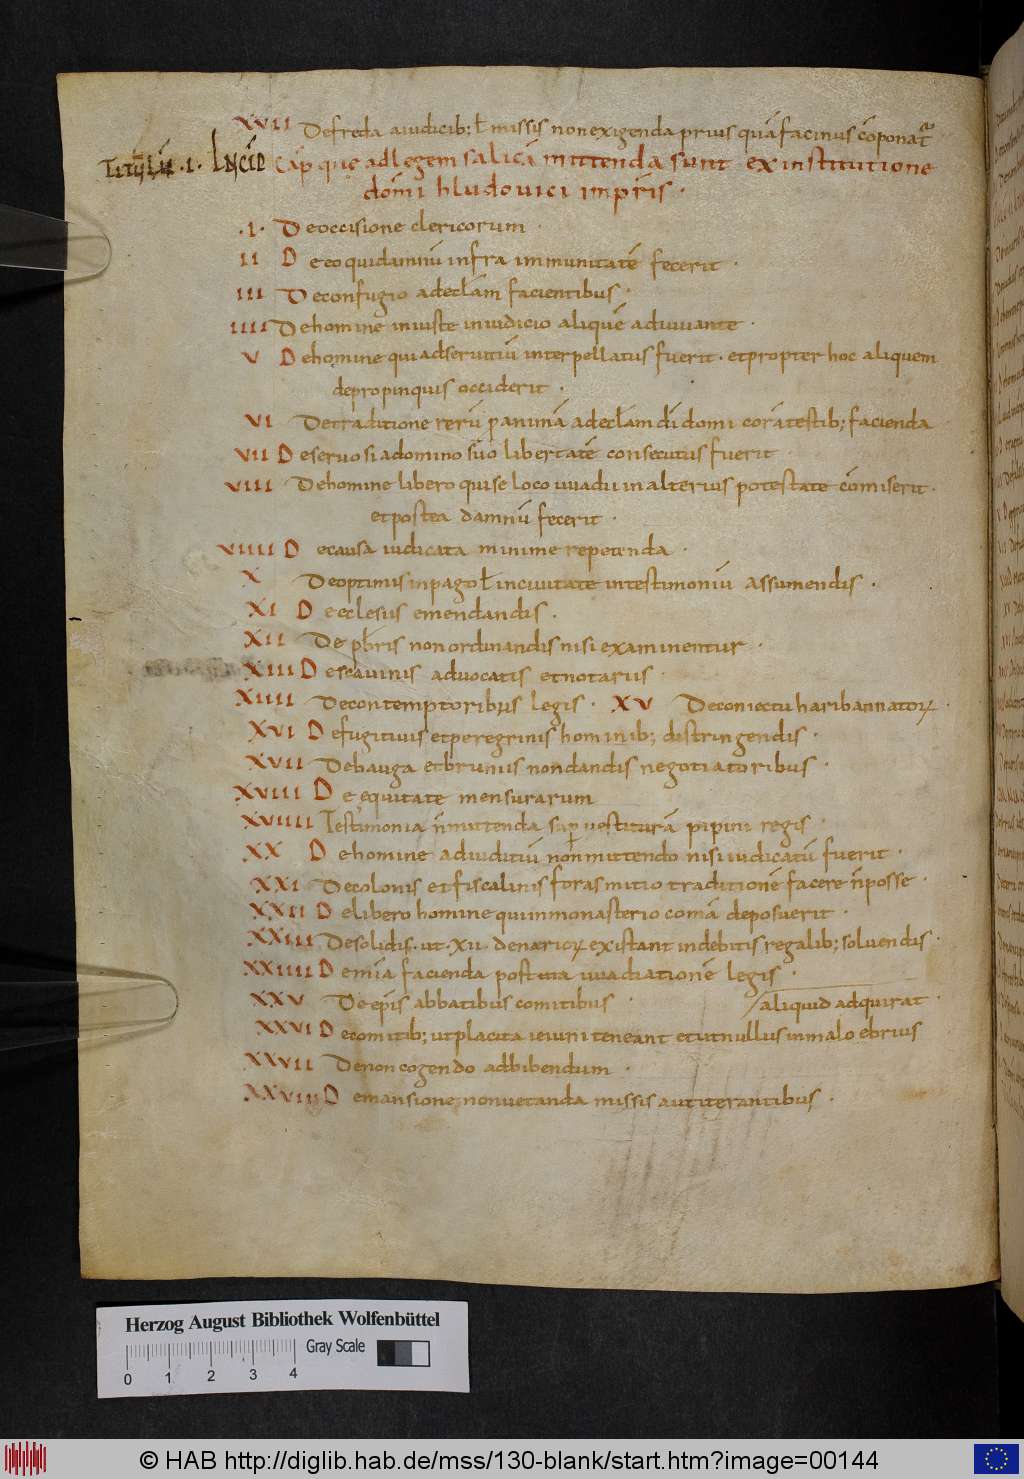 XVII Defreda aiudicib; ł missis nonexigenda prius quā facinus cōponat̄
Titulū .I. INCIP Cap̄ que adlegem salicā mittenda sunt ex institutione
dom̄i hludouici imp̄ris .
.I. Deoccisione clericorum .
II De eo quidamnū infra immunitatē fecerit .
III Deconfugio adecl̄am facientibus .
IIII Dehomine iniuste iniudicio aliquē adiuuante .
V Dehomine qui adseruitiū interpellatus fuerit . et propter hoc aliquem
depropinquis occiderit .
VI Detraditione rerū p animā adecl̄am dī domi corā testib; facienda
VII Deseruo si adomino suo libertatē consecutus fuerit
VIII Dehomine libero qui se loco uuadii in alterius potestate cōmiserit .
et postea damnū fecerit .
VIIII De causa iudicata minime repetenda .
X Deoptimis inpago ł inciuitate intestimoniū assumendis .
XI De ecclesiis emendandis .
XII De p̄bris non ordinandis nisi examinentur .
XIII De scauinis aduocatis et notariis .
XIIII Decontemptoribus legis . XV Deconiectu haribannatorꝝ .
XVI De fugitiuis et peregrinis hominib; distringendis .
XVII Debauga et bruniis non dandis negotiatoribus .
XVIII De equitate mensurarum
XVIIII Testimonia n̄ mittenda sup uestiturā pipini regis .
XX De homine adiuditiū non mittendo nisi iudicatū fuerit .
XXI Decolonis et fiscalinis foras mitio traditionē facere n̄ posse .
XXII De libero homine qui inmonasterio comā deposuerit .
XXIII Desolidis . ut . XII . denariorꝝ existant indebitis regalib; soluendis .
XXIIII De iniā facienda post uuadiationē legis .
XXV De ep̄is abbatibus comitibus . aliquid adquirat .
XXVI De comitib; ut placita ieiuni teneant et ut nullus inmalo ebrius
XXVII De non cogendo adbibendum .
XXVIII De mansione non uetanda missis aut iterantibus .
Herzog August Bibliothek Wolfenbüttel
Gray Scale
0 1 2 3 4
© HAB http://diglib.hab.de/mss/130-blank/start.htm?image=00144